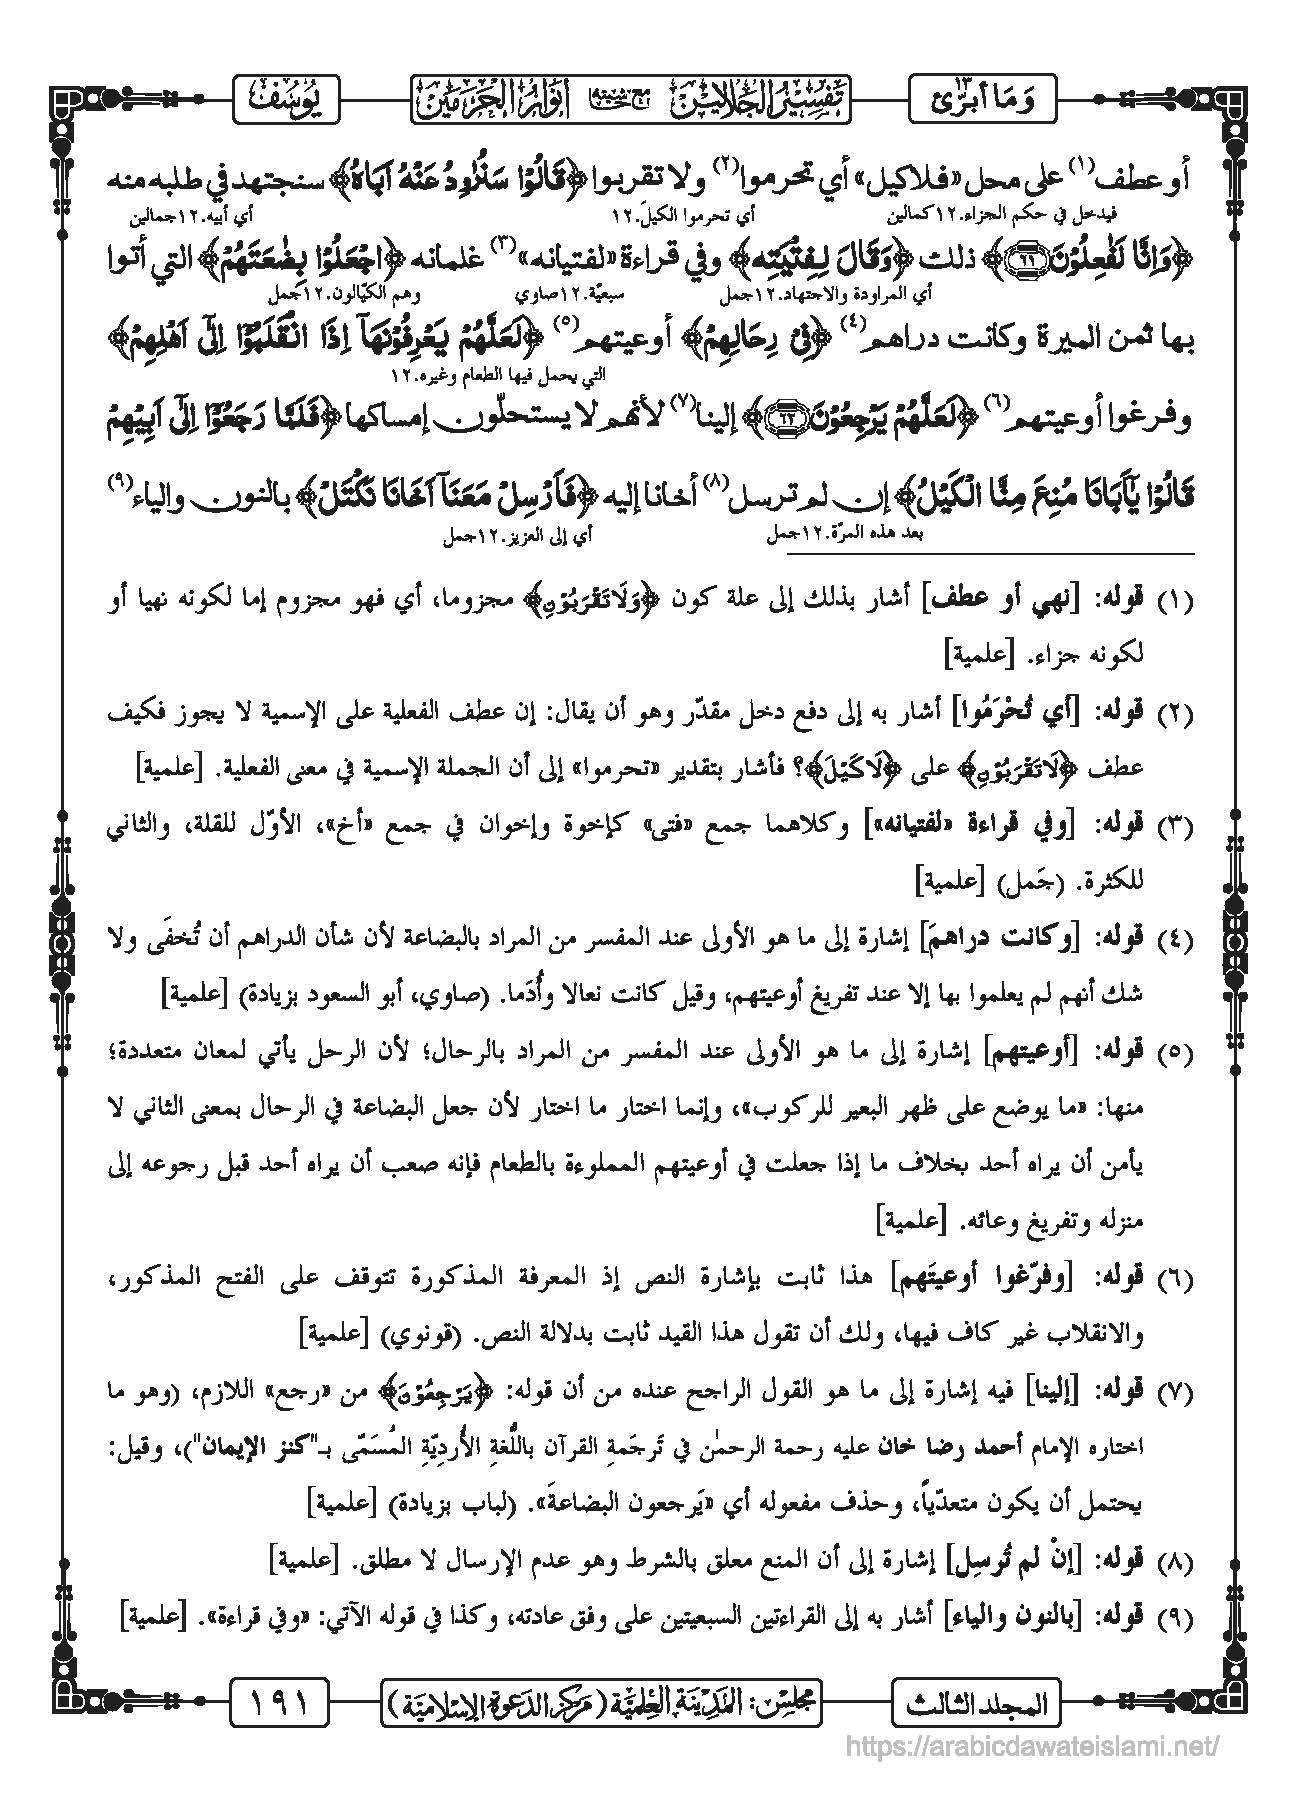 وَمَا أبرّئ ١٣
تفسير الجلالين مع حاشيته أنوار الحرمين
يُوسُف
أو عطف(١) على محل «فلاكيل» أي تحرموا(٢) ولا تقربوا ﴿قَالُوۡا سَنُرَاوِدُ عَنۡهُ اَبَاهُ﴾ سنجتهد في طلبه منه
فيدخل في حكم الجزاء.١٢كمالين أي تحرموا الكيلَ.١٢ أي أبيه.١٢جمالين
﴿وَاِنَّا لَفٰعِلُوۡنَ ﴿٦١﴾﴾ ذلك ﴿وَقَالَ لِفِتۡيَتِهِ﴾ وفي قراءة «لفتيانه»(٣) غلمانه ﴿اجۡعَلُوۡا بِضٰعَتَهُمۡ﴾ التي أتوا
أي المراودة والاجتهاد.١٢جمل سبعيّة.١٢صاوي وهم الكيّالون.١٢جمل
بها ثمن الميرة وكانت دراهم(٤) ﴿فِيۡ رِحَالِهِمۡ﴾ أوعيتهم(٥) ﴿لَعَلَّهُمۡ يَعۡرِفُوۡنَهَاۤ اِذَا انۡقَلَبُوۡۤا اِلٰۤى اَهۡلِهِمۡ﴾
التي يحمل فيها الطعام وغيره.١٢
وفرغوا أوعيتهم(٦) ﴿لَعَلَّهُمۡ يَرۡجِعُوۡنَ ﴿٦٢﴾﴾ إلينا(٧) لأنهم لا يستحلّون إمساكها ﴿فَلَمَّا رَجَعُوۡۤا اِلٰۤى اَبِيۡهِمۡ
قَالُوۡا يٰۤاَبَانَا مُنِعَ مِنَّا الۡكَيۡلُ﴾ إن لم ترسل(٨) أخانا إليه ﴿فَاَرۡسِلۡ مَعَنَاۤ اَخَانَا نَكۡتَلۡ﴾ بالنون والياء(٩)
بعد هذه المرّة.١٢جمل أي إلى العزيز.١٢جمل
(١) قوله: [نهي أو عطف] أشار بذلك إلى علة كون ﴿وَلَا تَقۡرَبُوۡنِ﴾ مجزوما، أي فهو مجزوم إما لكونه نهيا أو
لكونه جزاء. [علمية]
(٢) قوله: [أي تُحْرَمُوا] أشار به إلى دفع دخل مقدّر وهو أن يقال: إن عطف الفعلية على الإسمية لا يجوز فكيف
عطف ﴿لَا تَقۡرَبُوۡنِ﴾ على ﴿لَا كَيۡلَ﴾؟ فأشار بتقدير «تحرموا» إلى أن الجملة الإسمية في معنى الفعلية. [علمية]
(٣) قوله: [وفي قراءة «لفتيانه»] وكلاهما جمع «فتى» كإخوة وإخوان في جمع «أخ»، الأوّل للقلة، والثاني
للكثرة. (جَمل) [علمية]
(٤) قوله: [وكانت دراهمَ] إشارة إلى ما هو الأولى عند المفسر من المراد بالبضاعة لأن شأن الدراهم أن تُخفَى ولا
شك أنهم لم يعلموا بها إلا عند تفريغ أوعيتهم، وقيل كانت نعالا وأُدَما. (صاوي، أبو السعود بزيادة) [علمية]
(٥) قوله: [أوعيتهم] إشارة إلى ما هو الأولى عند المفسر من المراد بالرحال؛ لأن الرحل يأتي لمعان متعددة؛
منها: «ما يوضع على ظهر البعير للركوب»، وإنما اختار ما اختار لأن جعل البضاعة في الرحال بمعنى الثاني لا
يأمن أن يراه أحد بخلاف ما إذا جعلت في أوعيتهم المملوءة بالطعام فإنه صعب أن يراه أحد قبل رجوعه إلى
منزله وتفريغ وعائه. [علمية]
(٦) قوله: [وفرّغوا أوعيتَهم] هذا ثابت بإشارة النص إذ المعرفة المذكورة تتوقف على الفتح المذكور،
والانقلاب غير كاف فيها، ولك أن تقول هذا القيد ثابت بدلالة النص. (قونوي) [علمية]
(٧) قوله: [إلينا] فيه إشارة إلى ما هو القول الراجح عنده من أن قوله: ﴿يَرۡجِعُوۡنَ﴾ من «رجع» اللازم، (وهو ما
اختاره الإمام أحمد رضا خان عليه رحمة الرحمٰن في تَرجَمةِ القرآن باللُّغةِ الأُردِيّةِ المُسَمّى بـ"كنز الإيمان")، وقيل:
يحتمل أن يكون متعدّياً، وحذف مفعوله أي «يَرجعون البضاعةَ». (لباب بزيادة) [علمية]
(٨) قوله: [إنْ لم تُرسِل] إشارة إلى أن المنع معلق بالشرط وهو عدم الإرسال لا مطلق. [علمية]
(٩) قوله: [بالنون والياء] أشار به إلى القراءتين السبعيتين على وفق عادته، وكذا في قوله الآتي: «وفي قراءة». [علمية]
المجلد الثالث
مجلس: المدينة العلمية (مركز الدعوة الإسلامية)
١٩١
https://arabicdawateislami.net/